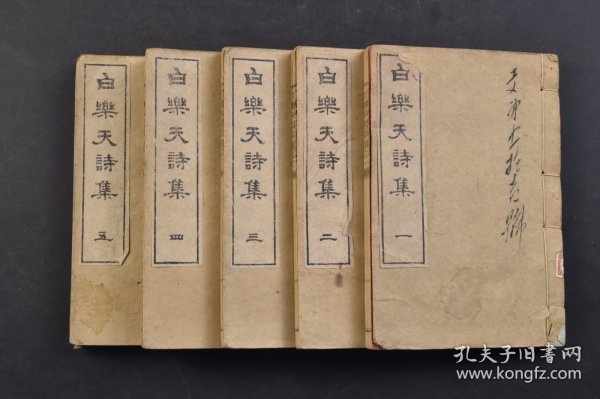 白樂天詩集 一
白樂天詩集 二
白樂天詩集 三
白樂天詩集 四
白樂天詩集 五
孔夫子旧书网
www.kongfz.com